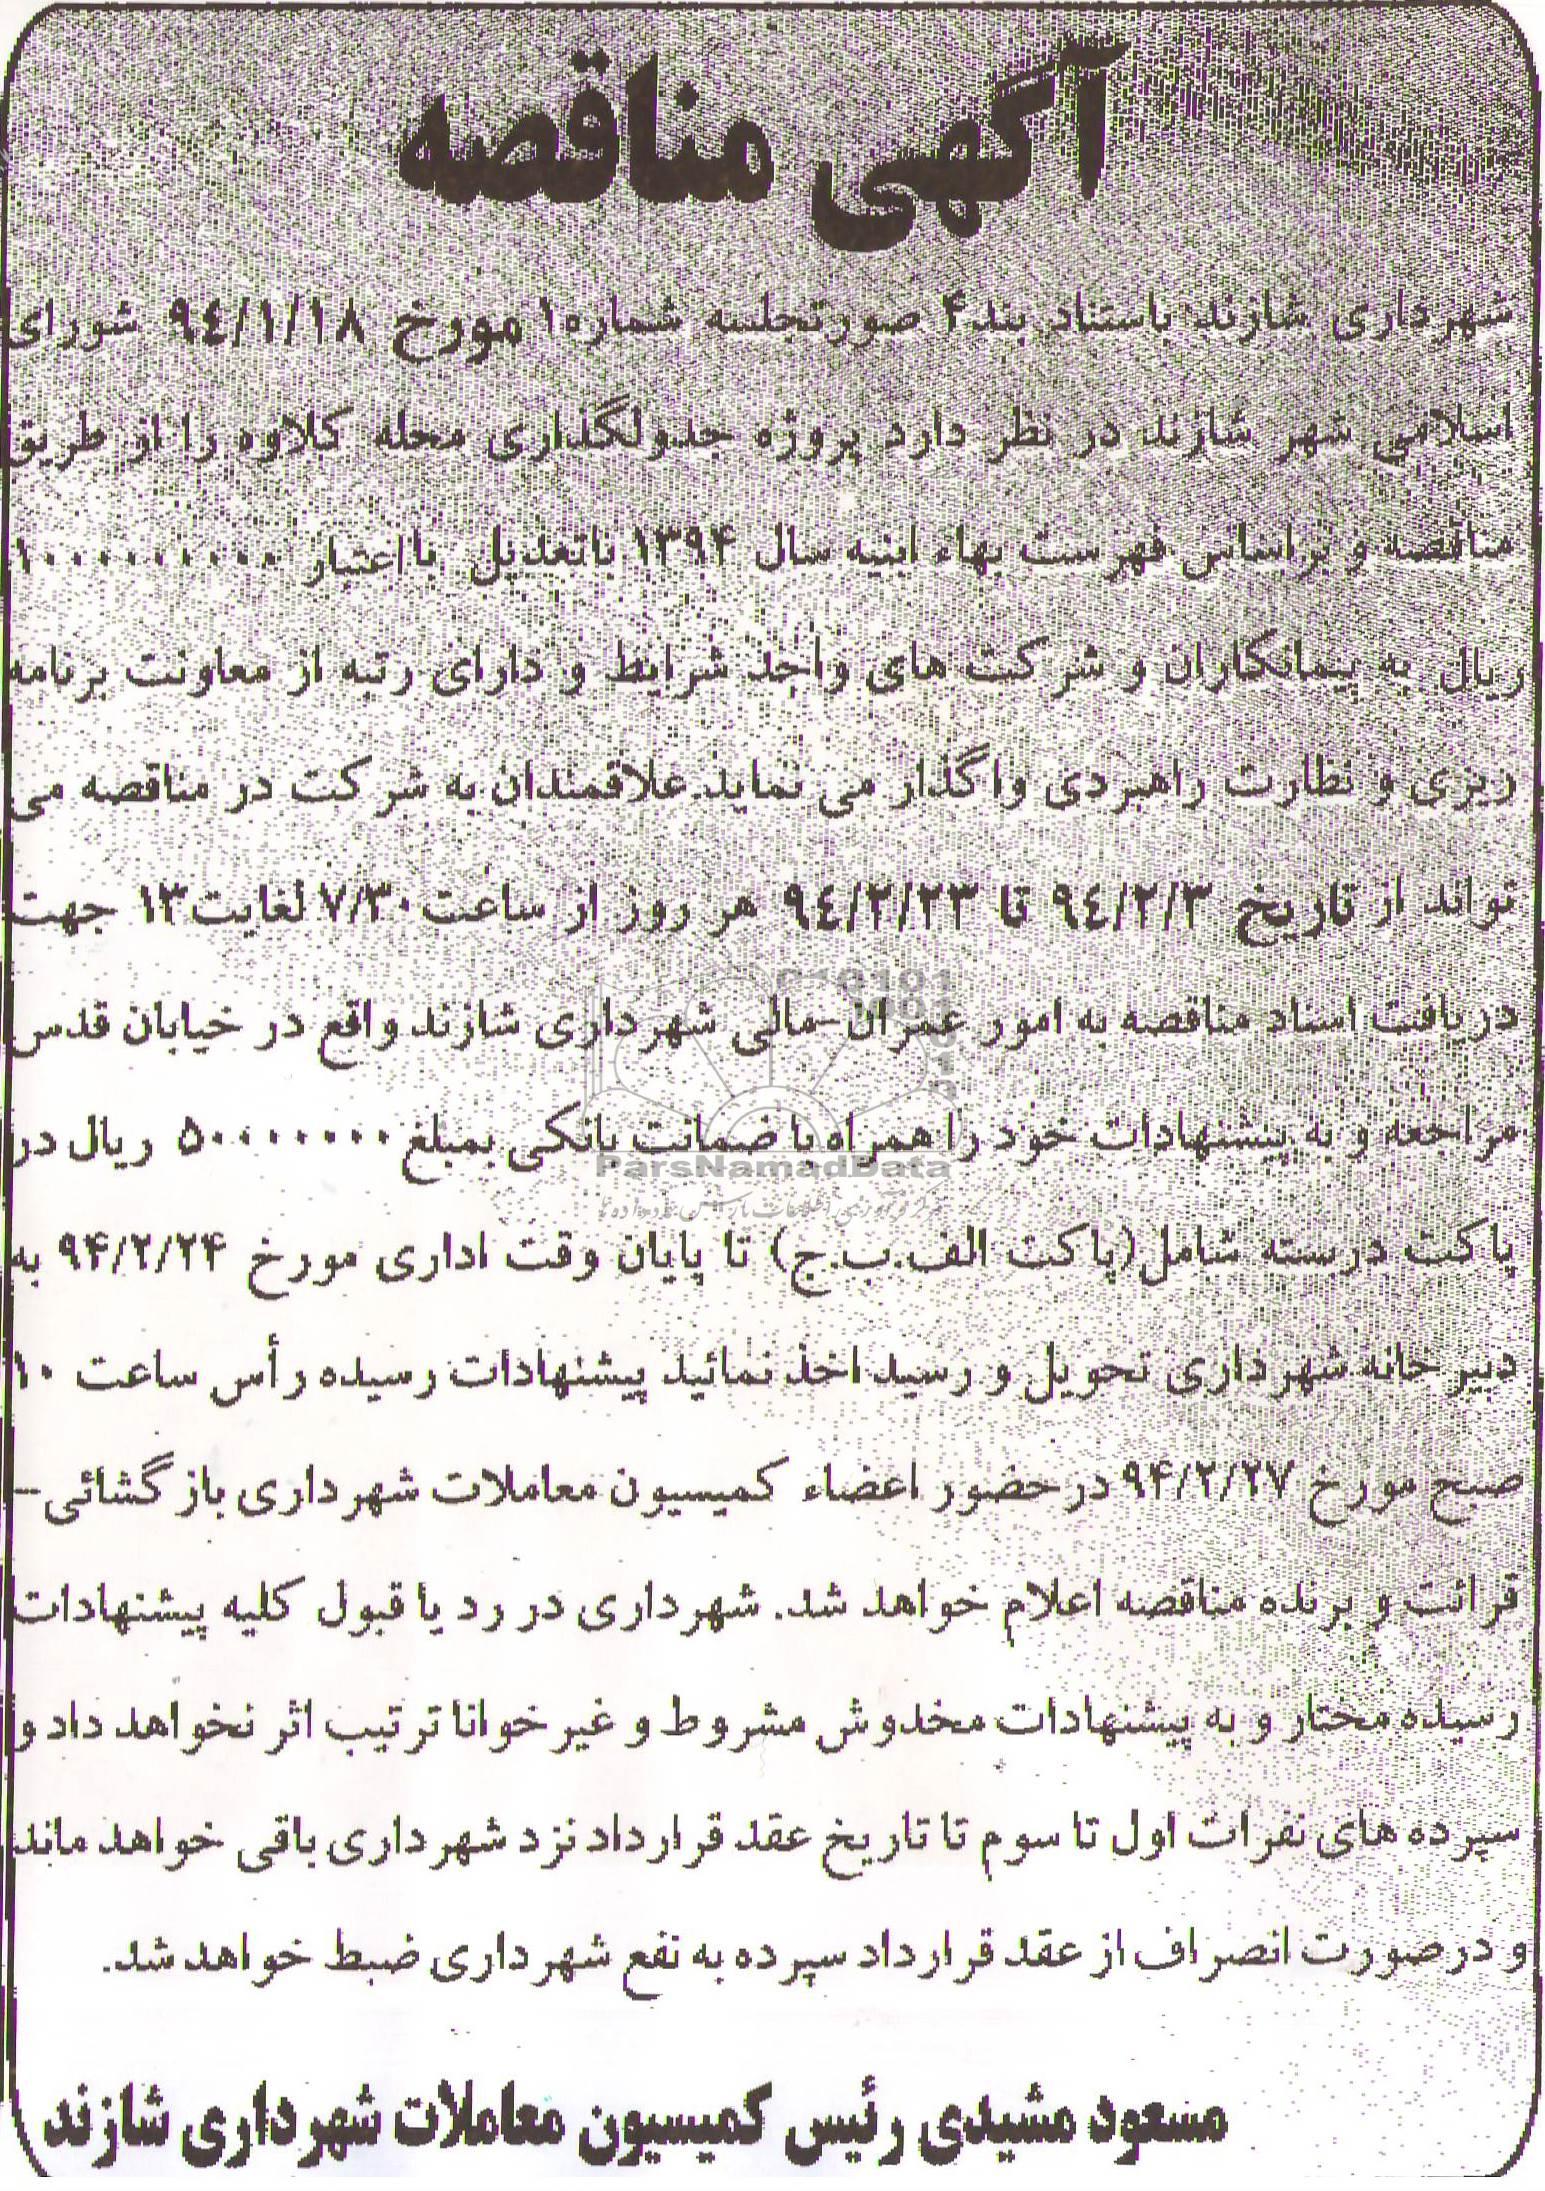 آگهی مناقصه
شهرداری شازند باستناد بند۴ صورتجلسه شماره۱ مورخ ۹٤/۱/۱۸ شورای
اسلامی شهر شازند در نظر دارد پروژه جدولگذاری محله کلاوه را از طریق
مناقصه و براساس فهرست بهاء ابنیه سال ۱۳۹۴ باتعدیل با اعتبار ۱۰۰۰۰۰۰۰۰۰۰
ریال به پیمانکاران و شرکت های واجد شرایط و دارای رتبه از معاونت برنامه
ریزی و نظارت راهبردی واگذار می نماید.علاقمندان به شرکت در مناقصه می
تواند از تاریخ ۹٤/۲/۳ تا ۹٤/۲/۲۳ هر روز از ساعت ۷/۳۰ لغایت۱۳ جهت
دریافت اسناد مناقصه به امور عمران-مالی شهرداری شازند واقع در خیابان قدس
مراجعه و به پیشنهادات خود را همراه با ضمانت بانکی بمبلغ ۵۰۰۰۰۰۰۰۰ ریال در
پاکت دربسته شامل(پاکت الف.ب.ج) تا پایان وقت اداری مورخ ۹۴/۲/۲۴ به
دبیرخانه شهرداری تحویل و رسید اخذ نمائید پیشنهادات رسیده رأس ساعت ۱۰
صبح مورخ ۹۴/۲/۲۷ در حضور اعضاء کمیسیون معاملات شهرداری بازگشائی-
قرائت و برنده مناقصه اعلام خواهد شد. شهرداری در رد یا قبول کلیه پیشنهادات
رسیده مختار و به پیشنهادات مخدوش مشروط و غیرخوانا ترتیب اثر نخواهد داد و
سپرده های نفرات اول تا سوم تا تاریخ عقد قرارداد نزد شهرداری باقی خواهد ماند
و درصورت انصراف از عقد قرارداد سپرده به نفع شهرداری ضبط خواهد شد.
مسعود مشیدی رئیس کمیسیون معاملات شهرداری شازند
ParsNamadData